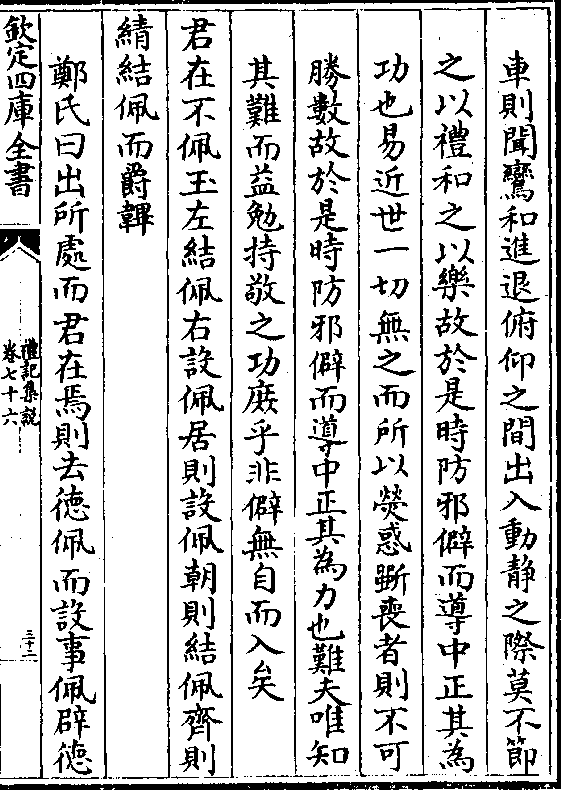 車則聞鸞和進退俯仰之間出入動静之際莫不節
之以禮和之以樂故於是時防邪僻而導中正其為
功也易近世一切無之而所以熒惑斵喪者則不可
勝數故於是時防邪僻而導中正其為力也難夫唯知
其難而益勉持敬之功庻乎非僻無自而入矣
君在不佩玉左結佩右設佩居則設佩朝則結佩齊則
綪結佩而爵韠
鄭氏曰出所處而君在焉則去徳佩而設事佩辟徳
欽定四庫全書
禮記集説
卷七十六
三十二